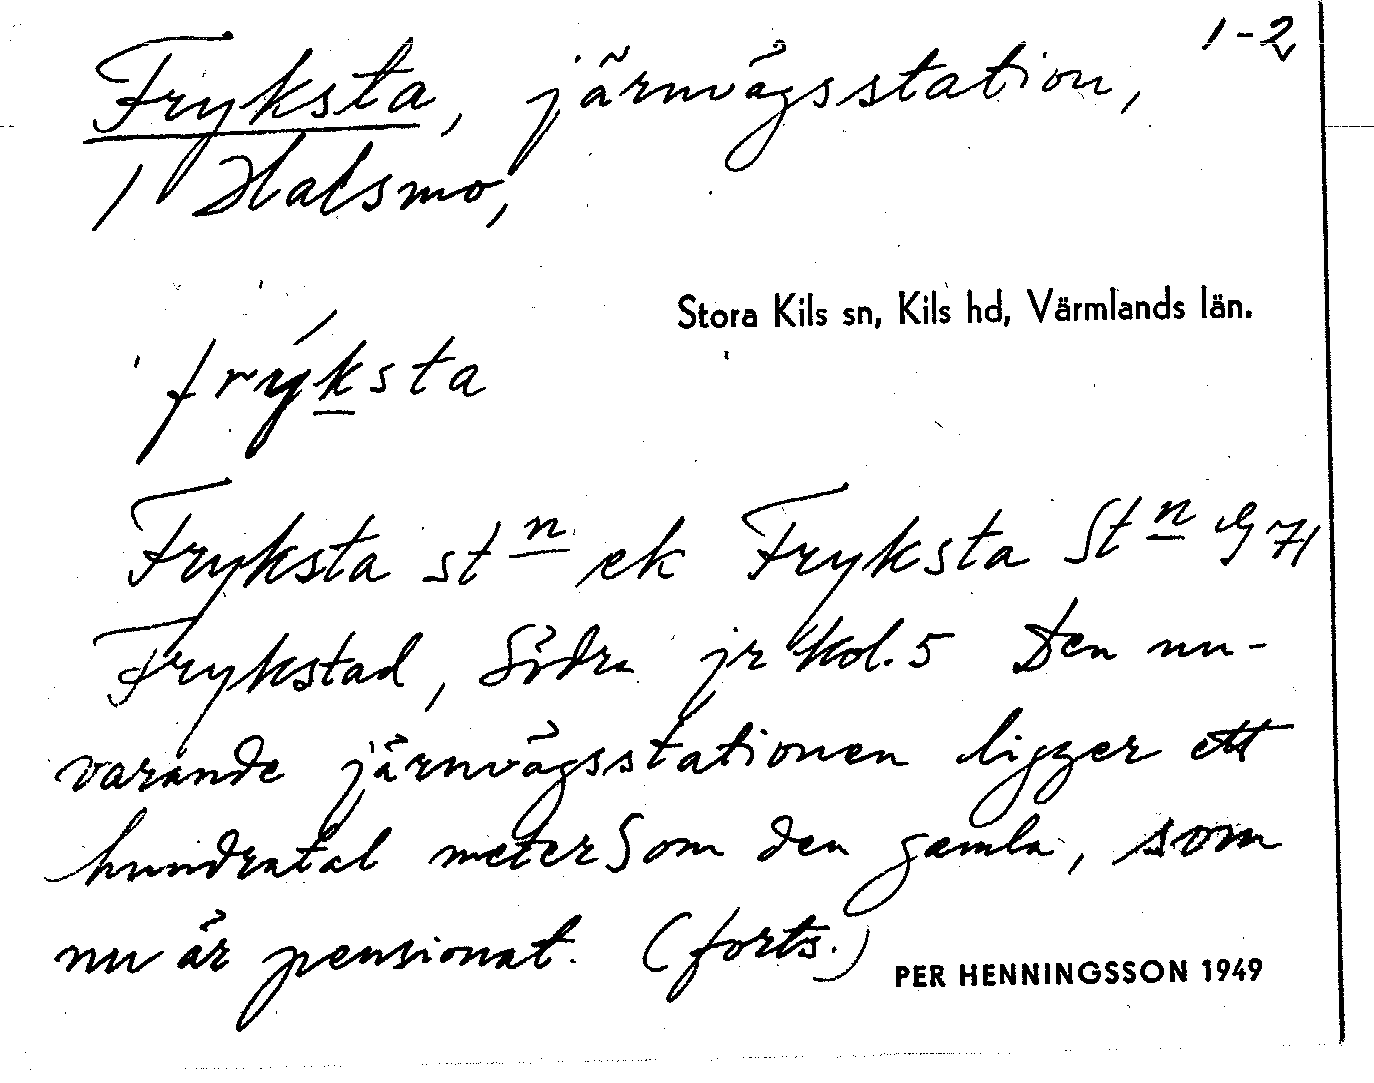 1-2
Fryksta, järnvägsstation,
/ Halsmo,
Stora Kils sn, Kils hd, Värmlands län.
frýksta
Fryksta stn ek Fryksta Stn G 71
Frykstad, Södra jr kol. 5 Den nu-
varande järnvägsstationen ligger ett
hundratal meter S om den gamla, som
nu är pensionat. (forts.)
PER HENNINGSSON 1949